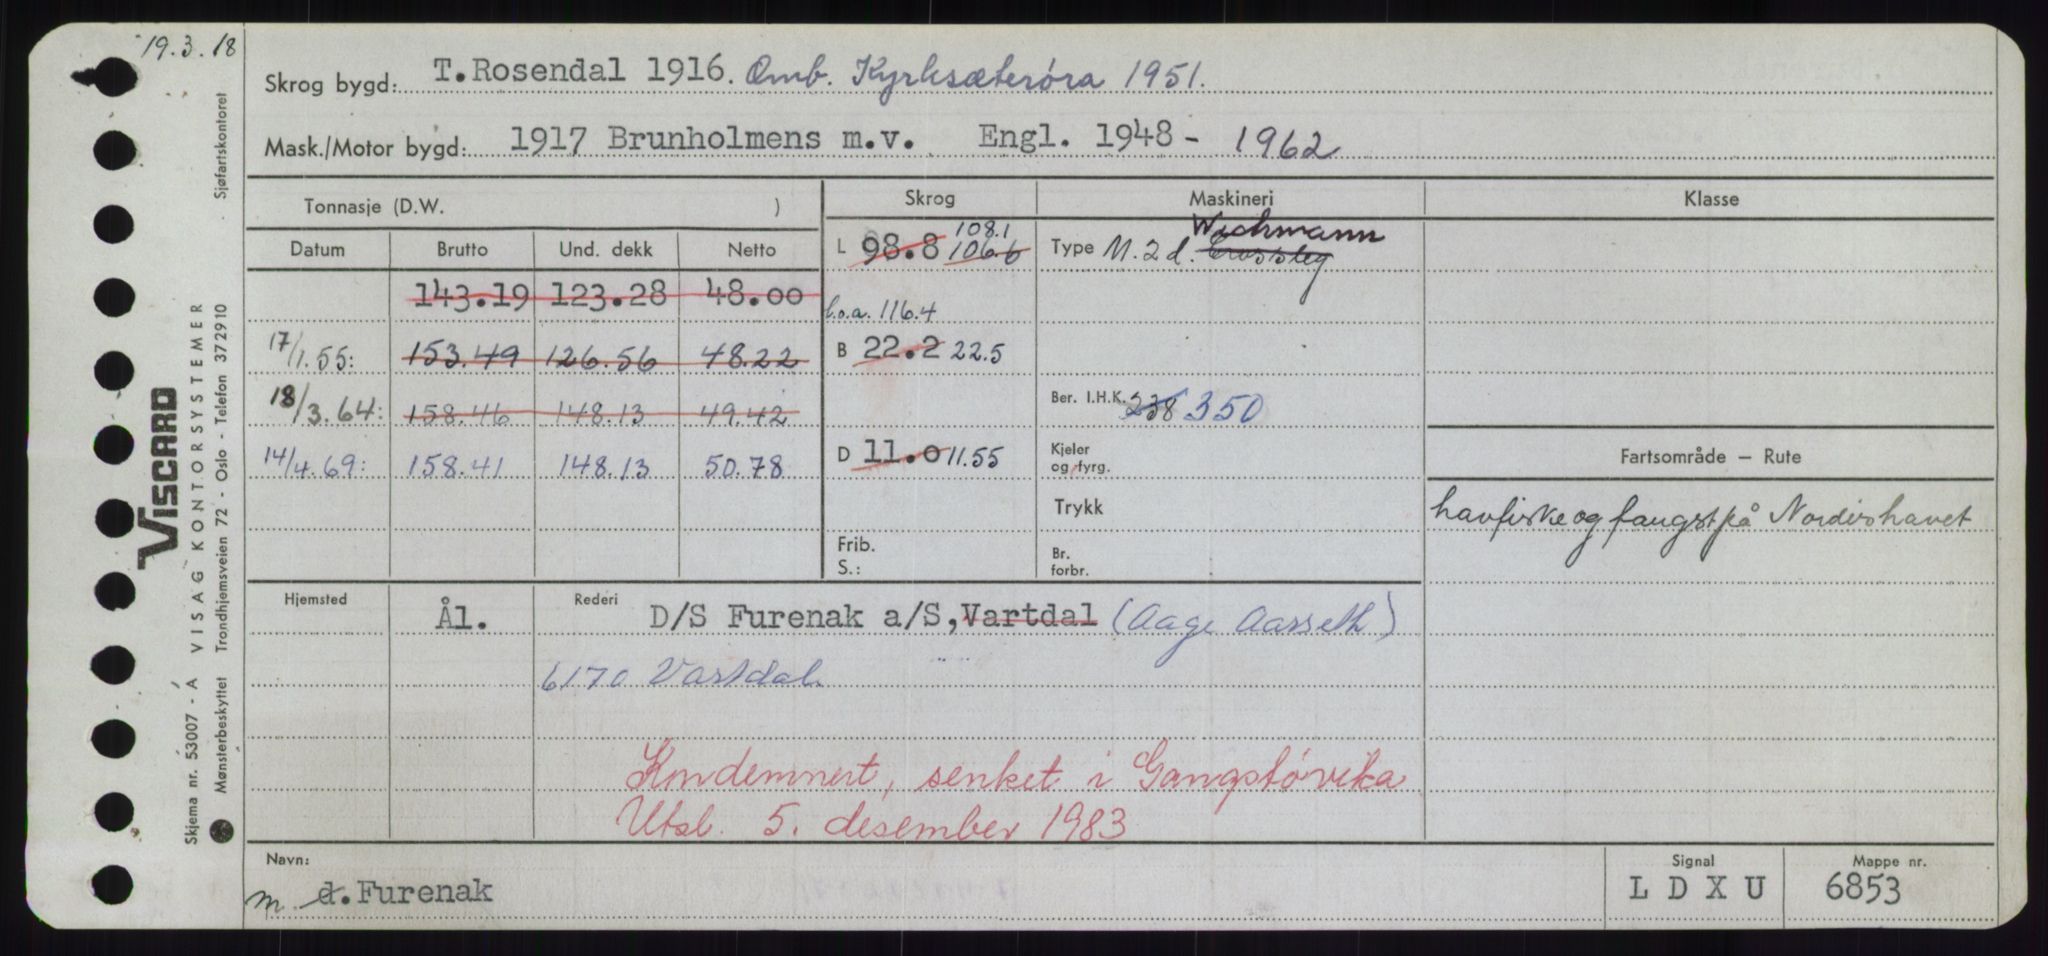 19.3.18
Skrog bygd: T. Rosendal 1916. Omb. Kyrksæterøra 1951.
Mask./Motor bygd: 1917 Brunholmens m.v. Engl. 1948 - 1962
Tonnasje (D.W. )
Skrog
Maskineri
Klasse
Datum Brutto Und. dekk Netto
L 98.8 106.6 108.1
Type M. 2 d. Crossley Wichmann
143.19 123.28 48.00
l.o.a. 116.4
17/1.55: 153.49 126.56 48.22
B 22.2 22.5
18/3.64: 158.46 148.13 49.42
Ber. I.H.K. 238 350
14/4.69: 158.41 148.13 50.78
D 11.0 11.55
Kjeler og fyrg.
Fartsområde — Rute
Trykk
havfiske og fangst på Nordishavet
Frib. S.:
Br. forbr.
Hjemsted Ål. Rederi D/S Furenak a/S, Vartdal (Aage Aarseth)
6170 Vartdal
Kondemnert, senket i Gangstøvika
Utsl. 5. desember 1983
Navn:
m. d. Furenak
Signal
L D X U
Mappe nr.
6853
VISCARD
VISAG KONTORSYSTEMER
Skjema nr. 53007 - A
Mønsterbeskyttet Trondhjemsveien 72 - Oslo - Telefon 372910 . Sjøfartskontoret